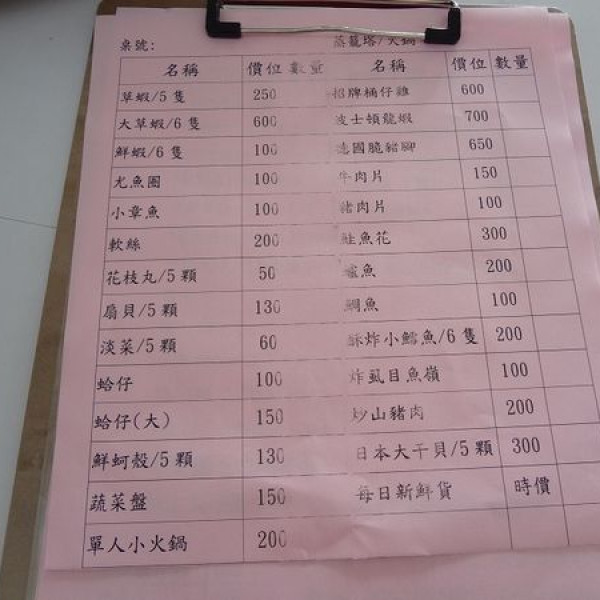 桌號: 蒸籠塔/火鍋
名稱 價位 數量 名稱 價位 數量
草蝦/5隻 250 招牌桶仔雞 600
大草蝦/6隻 600 波士頓龍蝦 700
鮮蝦/6隻 100 德國脆豬腳 650
尤魚圈 100 牛肉片 150
小章魚 100 豬肉片 100
軟絲 200 鮭魚花 300
花枝丸/5顆 50 鱸魚 200
扇貝/5顆 130 鯛魚 100
淡菜/5顆 60 酥炸小鱈魚/6隻 200
蛤仔 100 炸虱目魚嶺 100
蛤仔(大) 150 炒山豬肉 200
鮮蚵殼/5顆 130 日本大干貝/5顆 300
蔬菜盤 150 每日新鮮貨 時價
單人小火鍋 200